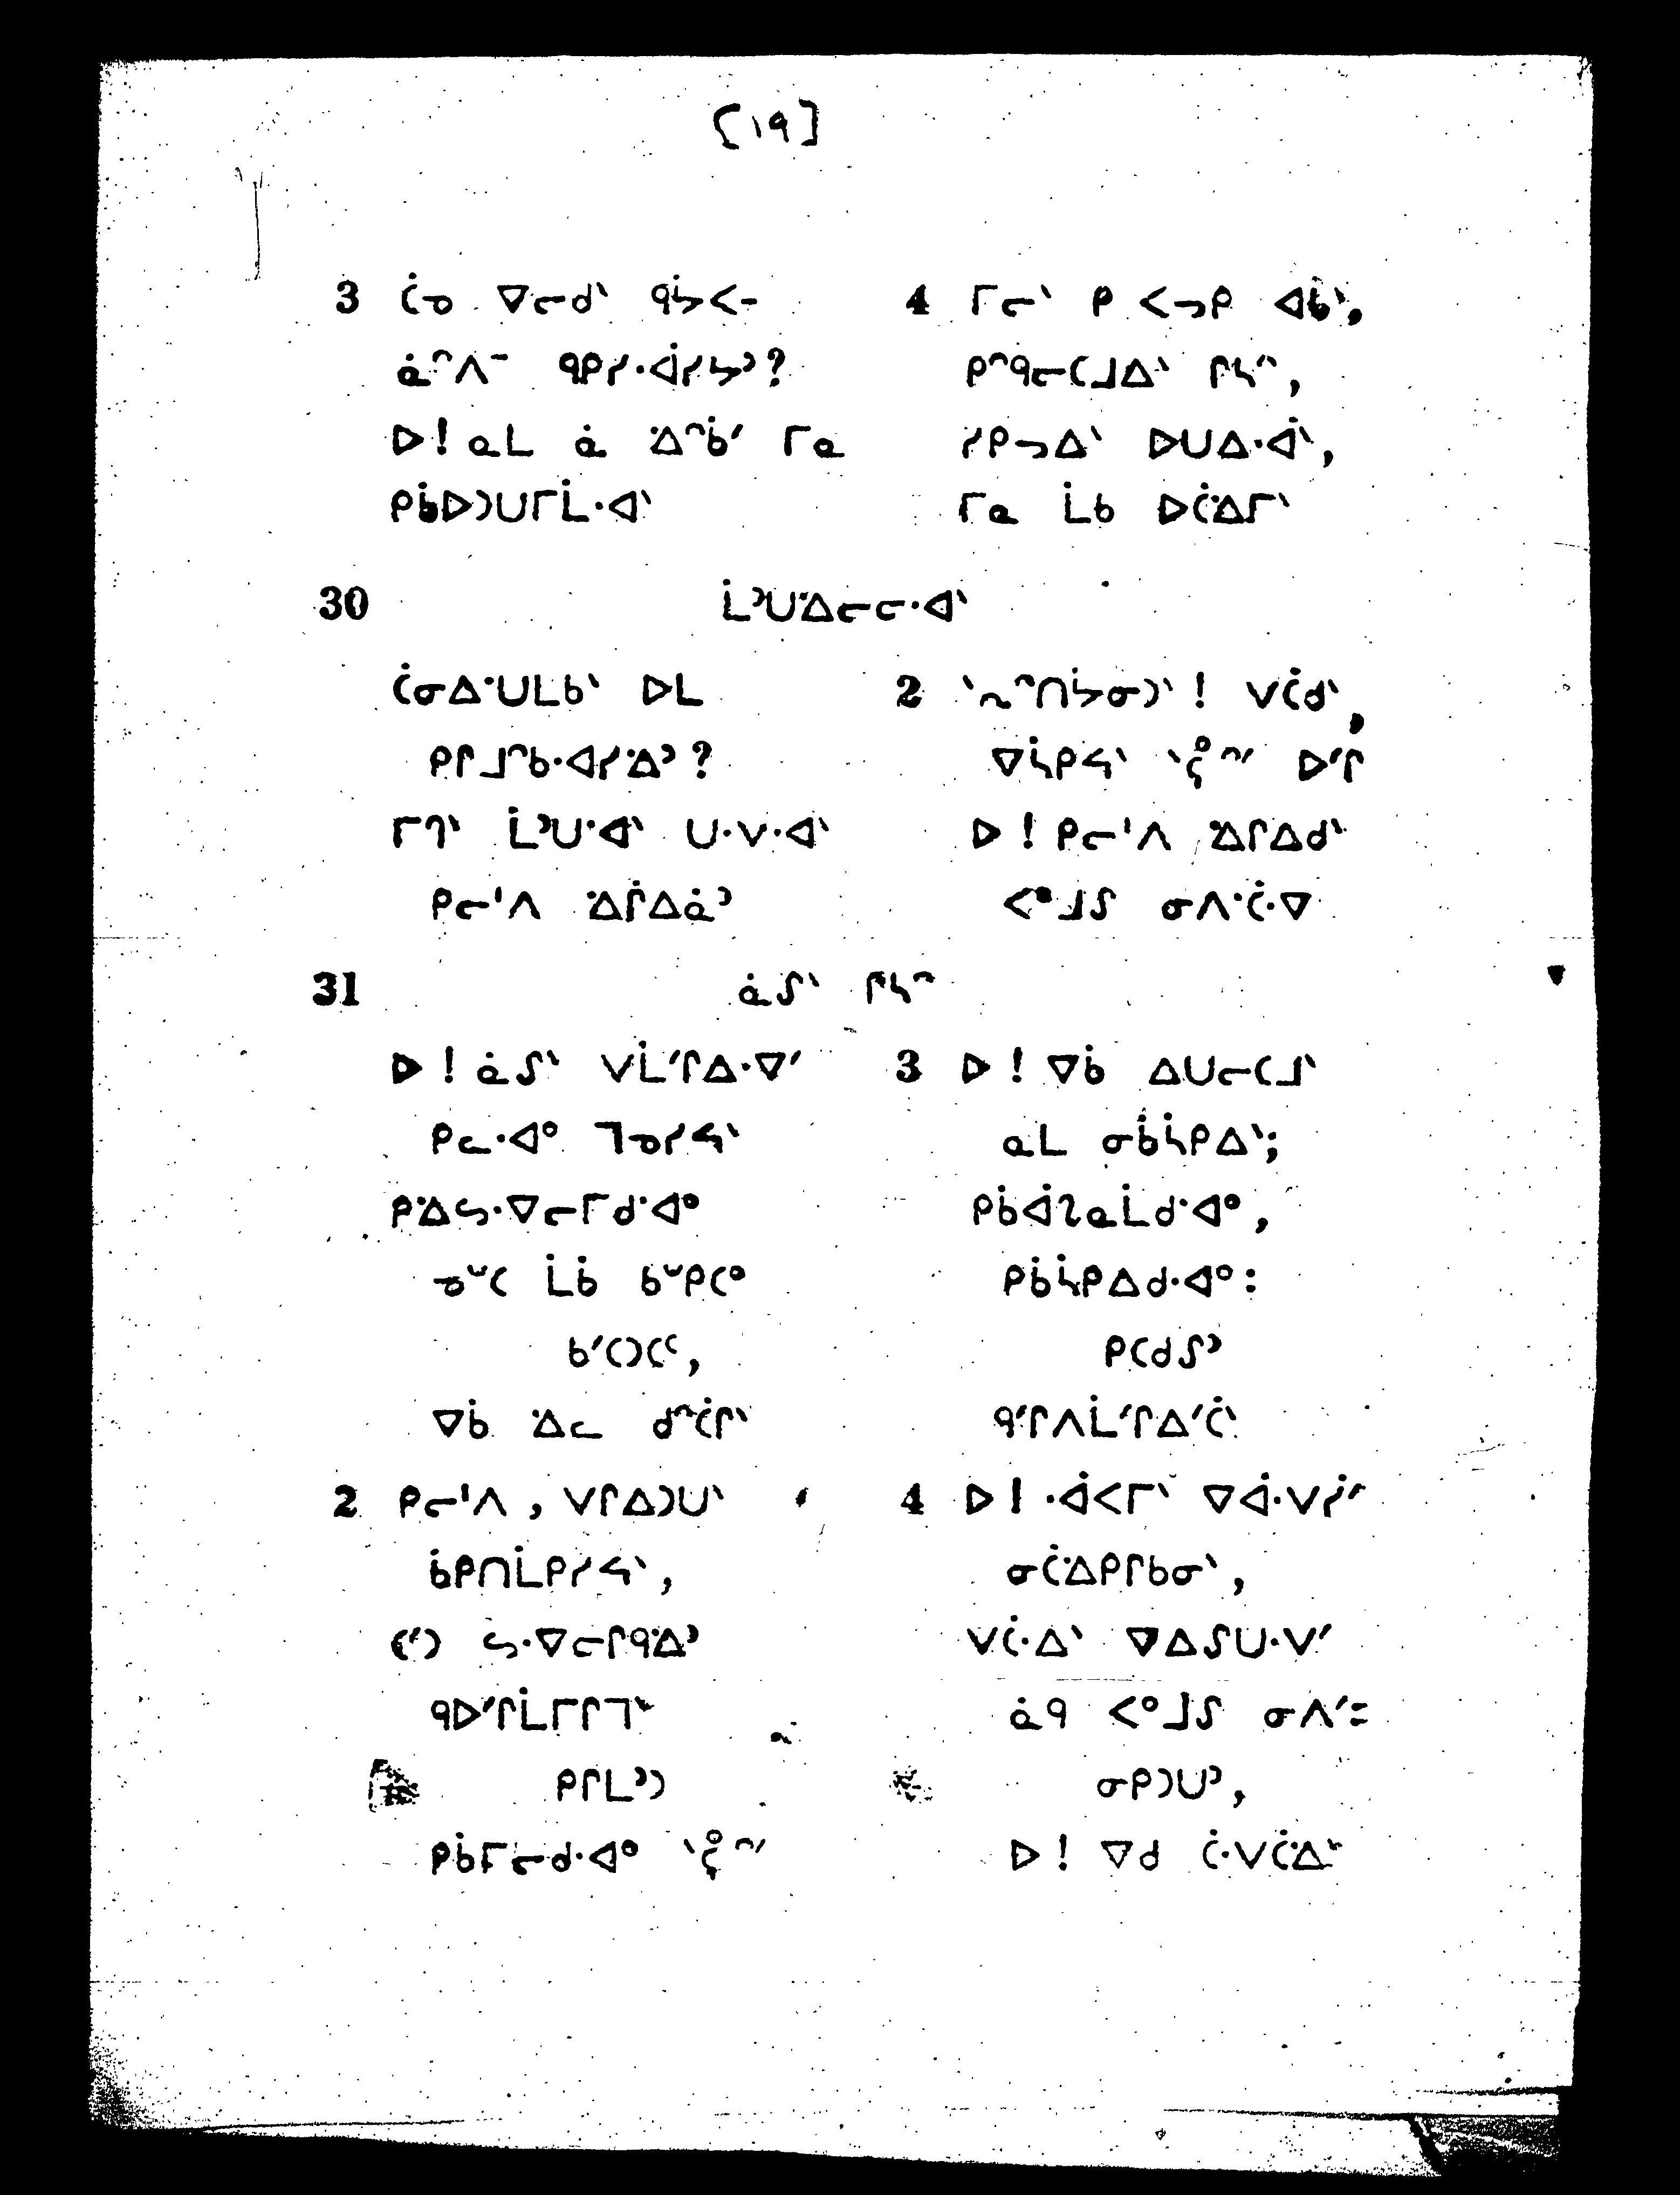 [19]
3 ᑖᓄ ᐁᓕᑯᐠ ᑫᔮᐸ-
ᓈᐢᐱ⁻ ᑫᑭᓯᐧᐋᓯᔭᐣ?
ᐅ! ᓇᒪ ᓈ ᐄᐧᐢᑳᐟ ᒥᓇ
ᑭᑳᐅᑐᑌᒥᒫᐧᐊᐠ
4 ᒥᓕᐠ ᑭ ᐸᓗᑭ ᐊᑳᐠ,
ᑭᐢᑫᓕᑕᒧᐃᐠ ᒋᓴᐢ,
ᓯᑭᓗᐃᐠ ᐅᑌᐃᐧᐋᐠ,
ᒥᓇ ᒫᑲ ᐅᑖᐄᐧᒥᐠ
30 ᒫᐣᑌᐄᐧᓕᓕᐧᐊᐠ
ᑖᓂᐃᐧᑌᒪᑲᐠ ᐅᒪ
ᑭᒋᒧᐢᑲᐧᐊᓯᐄᐧᐣ?
ᒥᒉᐠ ᒫᐣᑌᐧᐊᐠ ᑌᐧᐯᐧᐊᐠ
ᑭᓕᐟᐱ ᐄᐧᒌᐃᓈᐣ
2 ᐠᕒᐢᑎᔮᓂᑐᐠ! ᐯᑖᑯᐠ,
ᐁᓵᑭᓭᐠ
ᐅᐟᒋ
ᐅ! ᑭᓕᐟᐱ ᐄᐧᒋᐃᑯᐠ
ᐸᐤᒧᔑ ᓂᐱᐧᑖᐧᐁ
31 ᓈᔑᐠ ᒋᓴᐢ
ᐅ! ᓈᔑᐠ ᐯᒫᐟᒋᐃᐧᐁᐟ
ᑭᓚᐧᐊᐤ ᒣᓄᓯᓭᐠ
ᑭᐄᐧᔕᐧᐁᓕᒥᑯᐧᐊᐤ
ᓄᐡᑕ ᒫᑳ ᑲᐡᑭᑕᐤ
ᑲᐟᑕᑐᑕᑦ,
ᐁᑳ ᐄᐧᓚ ᑯᐢᑖᒋᐠ
2 ᑭᓕᐟᐱ, ᐯᒋᐃᑐᑌᐠ
ᑳᑭᑎᒫᑭᓯᓭᐠ,
ᑕᐟᑐ ᔕᐧᐁᓕᒋᑫᐄᐧᐣ
ᑫᐅᐟᒋᒫᒥᒋᒣᐠ
ᑭᒋᒪᐣᑐ
ᑭᑳᒥᓕᑯᐧᐊᐤ
3 ᐅ! ᐁᑳ ᐃᑌᓕᑕᒧᐠ
ᓇᒪ ᓂᑳᓵᑭᐃᐠ;
ᑭᑳᐋᔨᓇᒫᑯᐧᐊᐤ,
ᑭᑳᓵᑭᐃᑯᐧᐊᐤ:
ᑭᑕᑯᔑᐣ
ᑫᐟᒋᐱᒫᐟᒋᐃᐟᑖᐠ
4 ᐅ! ᐧᐋᐸᒥᐠ ᐁᐋᐧᐯᓰᐟ
ᓂᑖᐄᐧᑭᒋᑲᓂᐠ,
ᐯᑖᐧᐃᐠ ᐁᐃᔑᑌᐧᐯᐟ
ᓈᑫ ᐸᐤᒧᔑ ᓂᐱᐟ=
ᓂᑭᑐᑌᐣ,
ᐅ! ᐁᑯ ᑖᐧᐯᑖᐄᐧᐠ